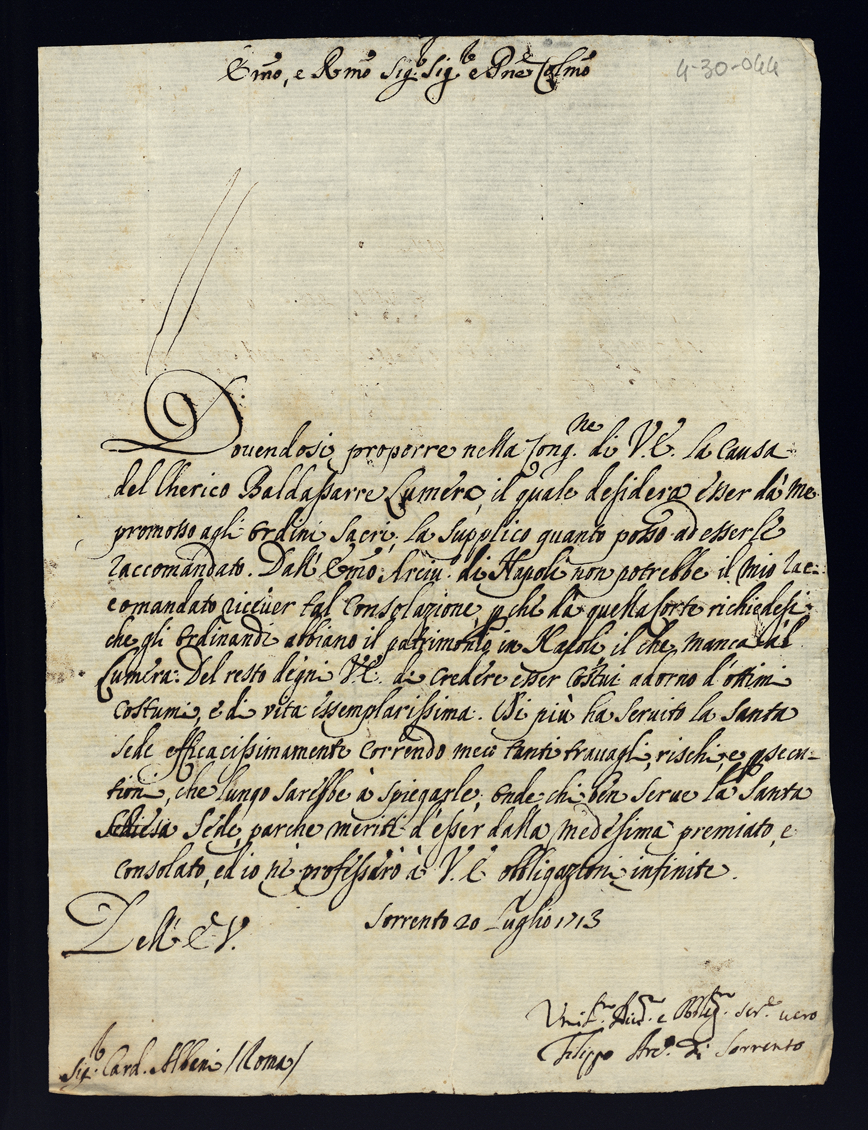 Emo, e Rmo Sig.r Sig.r e Pne Colmo
4-30-044
Douendosi proporre nella Cong.ne di V.E. la causa
del Cherico Baldassarre Lumera, il quale desidera esser dà me
promosso agli ordini sacri, la supplico quanto posso ad esserle
raccomandato. Dall' Emo Arciu: di Napoli non potrebbe il mio rac=
comandato riceuer tal consolazione, p che dà quella sorte richiedesi
che gli ordinandi abbiano il patrimonio in Napoli il che manca al
Lumera: Del resto degni V.E. de credere esser costui adorno d'ottimi
costumi, e di vita essemplarissima. Di più ha seruito la Santa
Sede efficacissimamente correndo meco tanti trauagli, rischi, e psecu=
tioni, che lungo sarebbe à spiegarle; onde chi ben serue la Santa
Sede, parche meriti d'esser dalla medesima premiato, e
consolato, ed io ni professarò à V.E. obbligazioni infinite.
Dell' E.V. Sorrento 20 Luglio 1713
e Obblig. Ser.e uero
Filippo Arc.o di Sorrento
Sig.r Card. Albani /Roma/